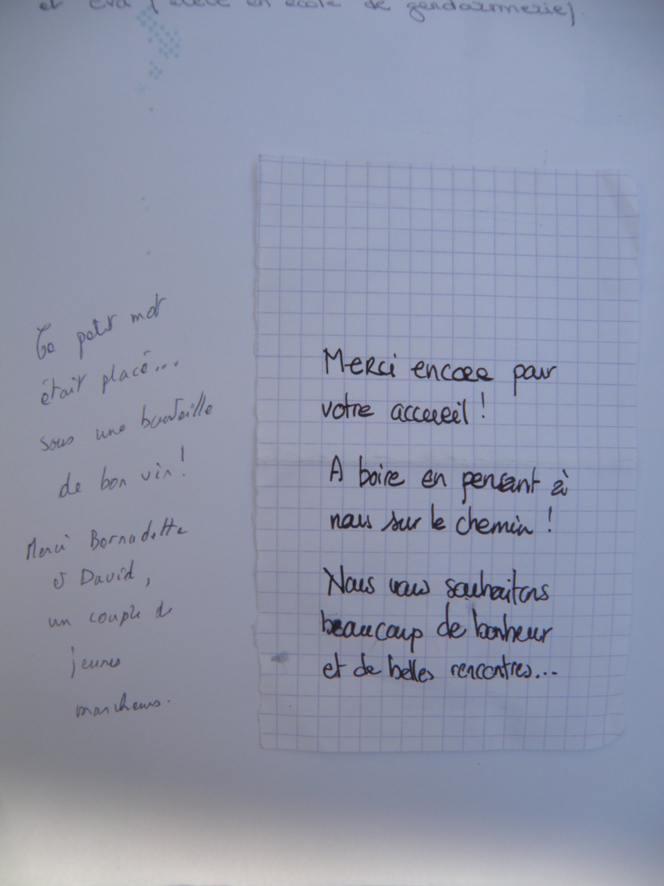 et Eva (élève en école de gendarmerie).
Ce petit mot
était placé...
sous une bouteille
de bon vin!
Merci Bernadette
et David,
un couple de
jeunes
marcheurs.
Merci encore pour
votre accueil !
A boire en pensant à
nous sur le chemin !
Nous vous souhaitons
beaucoup de bonheur
et de belles rencontres...